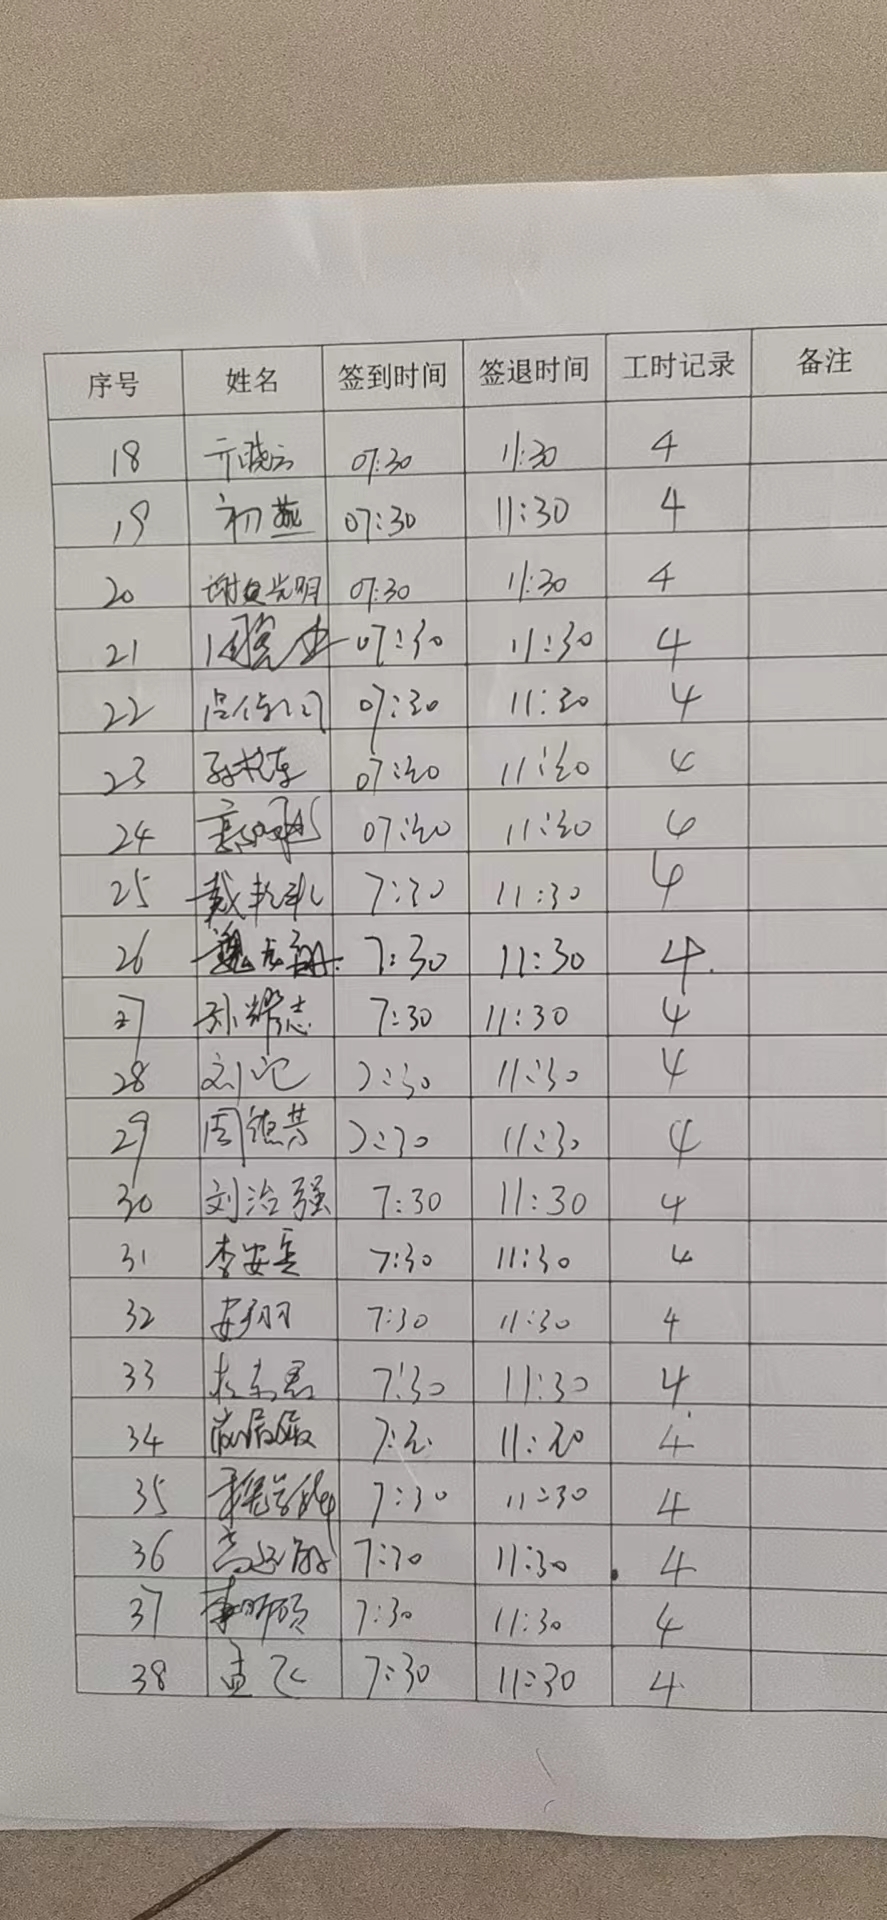 序号 姓名 签到时间 签退时间 工时记录 备注
18 亓晓云 07:30 11:30 4
19 初燕 07:30 11:30 4
20 谢 光明 07:30 11:30 4
21 07:30 11:30 4
22 07:30 11:30 4
23 07:30 11:30 4
24 07:30 11:30 4
25 戴 礼 7:30 11:30 4
26 魏 7:30 11:30 4.
27 孙耀志 7:30 11:30 4
28 刘 7:30 11:30 4
29 周德 7:30 11:30 4
30 刘治强 7:30 11:30 4
31 李安 7:30 11:30 4
32 安翔 7:30 11:30 4
33 杜 君 7:30 11:30 4
34 7:30 11:30 4
35 7:30 11:30 4
36 7:30 11:30 4
37 李 硕 7:30 11:30 4
38 孟飞 7:30 11:30 4